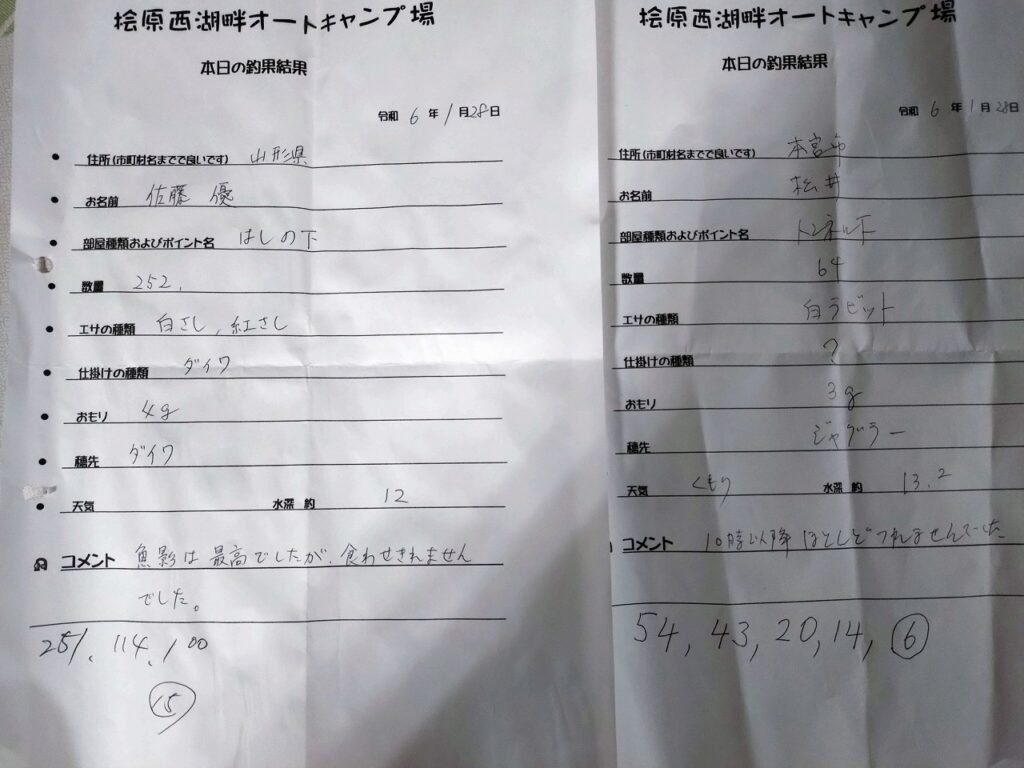 桧原西湖畔オートキャンプ場
本日の釣果結果
令和 6 年 1 月 28 日
住所(市町村名までで良いです) 山形県
お名前 佐藤 優
部屋種類およびポイント名 はしの下
数量 252.
エサの種類 白さし、紅さし
仕掛けの種類 ダイワ
おもり 4g
穂先 ダイワ
天気 水深 約 12
コメント 魚影は最高でしたが、食わせきれません
でした。
251. 114. 100
15
桧原西湖畔オートキャンプ場
本日の釣果結果
令和 6 年 1 月 28 日
住所(市町村名までで良いです) 本宮市
お名前 松井
部屋種類およびポイント名 トンネル下
数量 64
エサの種類 白ラビット
仕掛けの種類 ?
おもり 3g
穂先 ジャグラー
天気 くもり 水深 約 13.2
コメント 10時以降ほとんどつれませんでした
54, 43, 20, 14, 6